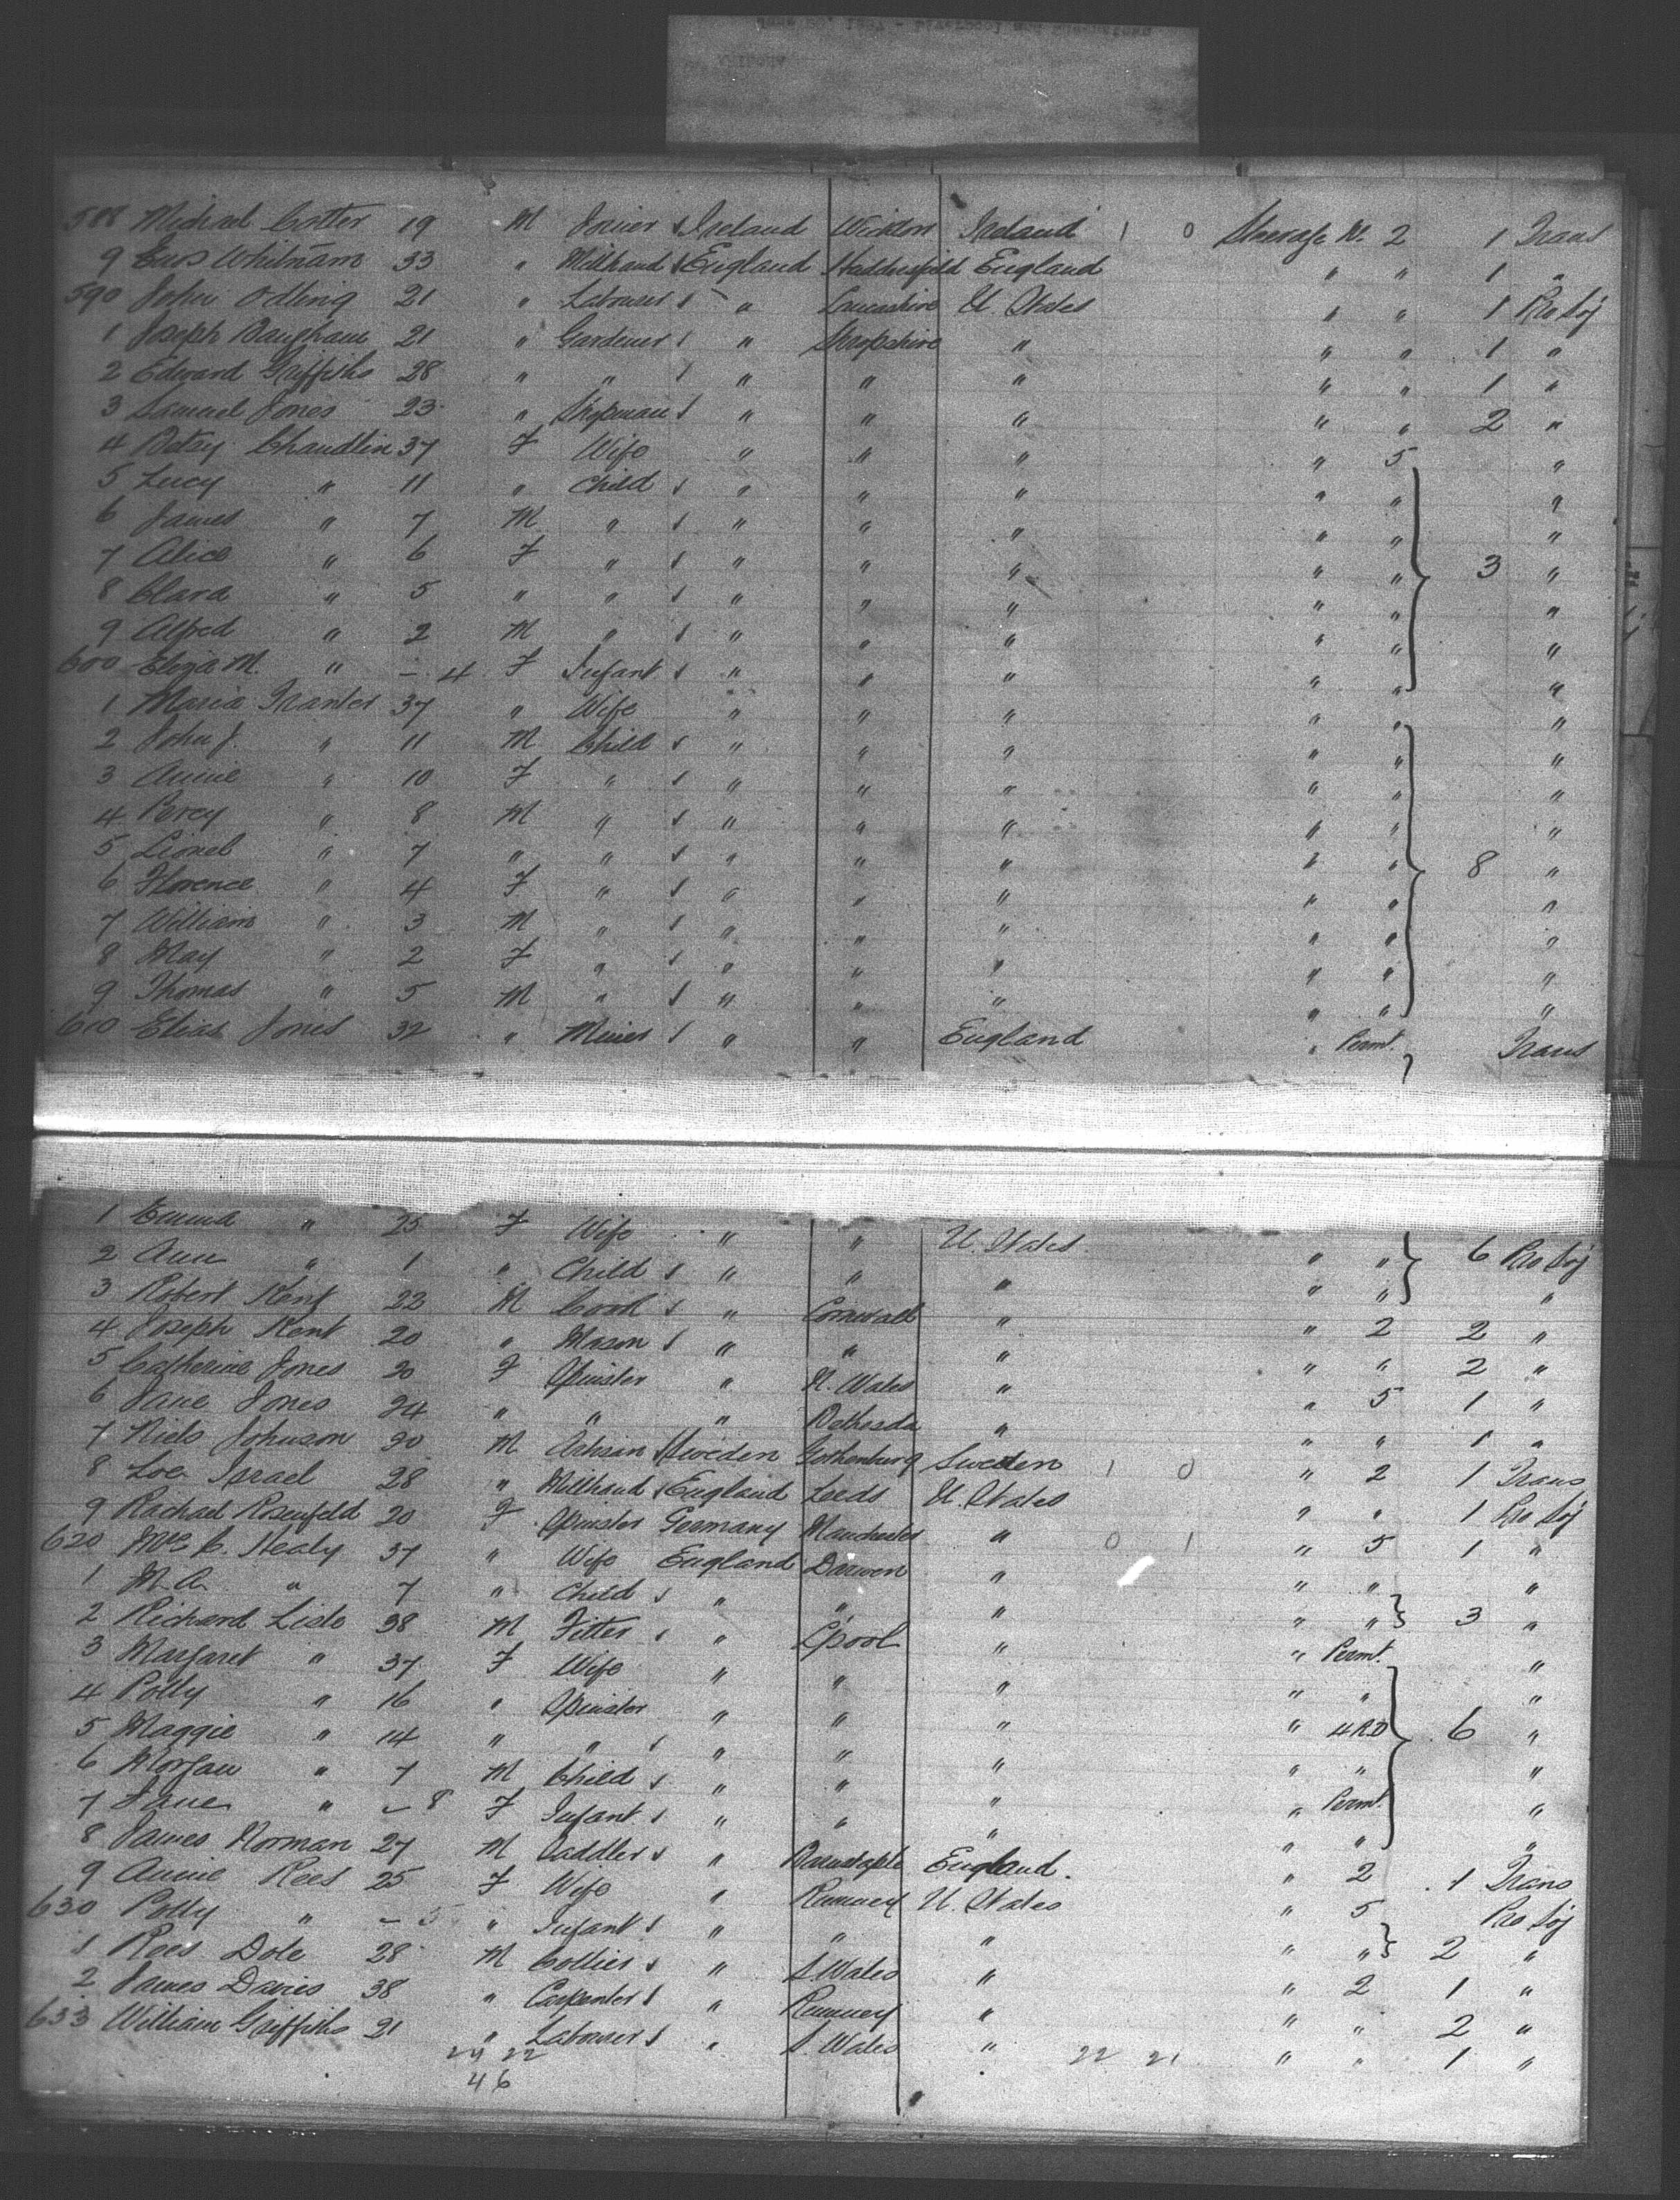 588 Michael Cotter 19 M Joiner s Ireland Wicklow Ireland 1 0 Steerage M. 2 1 Trans
9 Whitnam 33 " Millhand s England England " " 1 "
590 John Odling 21 " Labourer s " Lancashire U. States " " 1 Pro Soj
1 Joseph 21 " Gardener s " Shropshire " " " 1 "
2 Edward Griffiths 28 " " s " " " " " 1 "
3 Samuel Jones 23 " Shopman s " " " " " 2 "
4 Betsy Chandlin 37 F Wife " " " " 5 "
5 Lucy " 11 " Child s " " " " " "
6 James " 7 M " s " " " " " "
7 Alice " 6 F " s " " " " " 3 "
8 Clara " 5 " " s " " " " " "
9 Alfred " 2 M " s " " " " " "
600 Eliza M. " - 4 F Infant s " " " " " "
1 Maria Tranter 37 " Wife " " " " " "
2 John J. " 11 M Child s " " " " " "
3 Annie " 10 F " s " " " " " "
4 Percy " 8 M " s " " " " " "
5 Lionel " 7 " " s " " " " " 8 "
6 Florence " 4 F " s " " " " " "
7 William " 3 M " s " " " " " "
8 May " 2 F " s " " " " " "
9 Thomas " 5 M " s " " " " " "
610 Elias Jones 32 " Miner s " " England " Permt. Trans
1 Emma " 25 F Wife " " U. States " " 6 Pro Soj
2 Ann " 1 " Child s " " " " " "
3 Robert Kent 22 M Cook s " Cornwall " " 2 2 "
4 Joseph Kent 20 " Mason s " " " " " 2 "
5 Catherine Jones 20 F Spinster " N. Wales " " 5 1 "
6 Jane Jones 24 " " " Bethesda " " " 1 "
7 Niels Johnson 30 M Artisan s Sweden Gothenburg Sweden 1 0 " 2 1 Trans
8 Israel 28 " Millhand s England Leeds U. States " " 1 Pro Soj
9 Rachael Rosenfeld 20 F Spinster Germany Manchester " 0 1 " 5 1 "
620 Mrs C. Healy 37 " Wife England Darwen " " " "
1 M. A. " 7 " Child s " " " " " 3 "
2 Richard Lisle 38 M Fitter s " L'pool " " Permt. "
3 Margaret " 37 F Wife " " " " " "
4 Polly " 16 " Spinster " " " " 4 RD 6 "
5 Maggie " 14 " " s " " " " " "
6 Morgan " 7 M Child s " " " " Permt. "
7 Jane " - 8 F Infant s " " " " " "
8 James Norman 27 M Saddler s " Barnstaple England " 2 1 Trans
9 Annie Rees 25 F Wife " Rumney U. States " 5 Pro Soj
630 Polly " - 5 " Infant s " " " " " 2 "
1 Rees Dole 28 M Collier s " S. Wales " " 2 1 "
2 James Davies 38 " Carpenter s " Rumney " " " 2 "
633 William Griffiths 21 " Labourer s " S. Wales " 22 21 " " 1 "
24 22
46